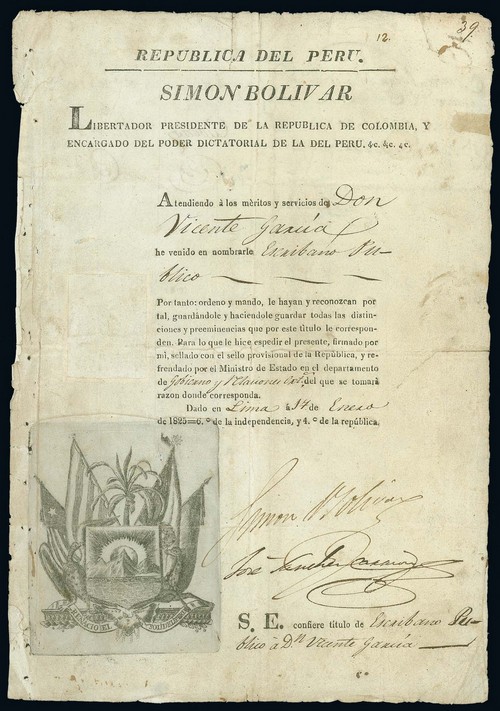 12.
39.
REPUBLICA DEL PERU.
SIMON BOLIVAR
LIBERTADOR PRESIDENTE DE LA REPUBLICA DE COLOMBIA, Y
ENCARGADO DEL PODER DICTATORIAL DE LA DEL PERU. &c. &c. &c.
Atendiendo á los mèritos y servicios de Don
Vicente Garcia
he venido en nombrarle Escribano Pu-
blico
Por tanto: ordeno y mando, le hayan y reconozcan por
tal, guardándole y haciendole guardar todas las distin-
ciones y preeminencias que por este título le correspon-
den. Para lo que le hice espedir el presente, firmado por
mi, sellado con el sello provisional de la República, y re-
frendado por el Ministro de Estado en el departamento
de Gobierno y Relaciones Ext.s del que se tomará
razon donde corresponda.
Dado en Lima á 14 de Enero
de 1825=6.º de la independencia, y 4.º de la república.
Simon Bolivar
José Sanchez Carrion
RENACIO DEL
S. E. confiere título de Escribano Pu-
blico á Dn Vicente Garcia